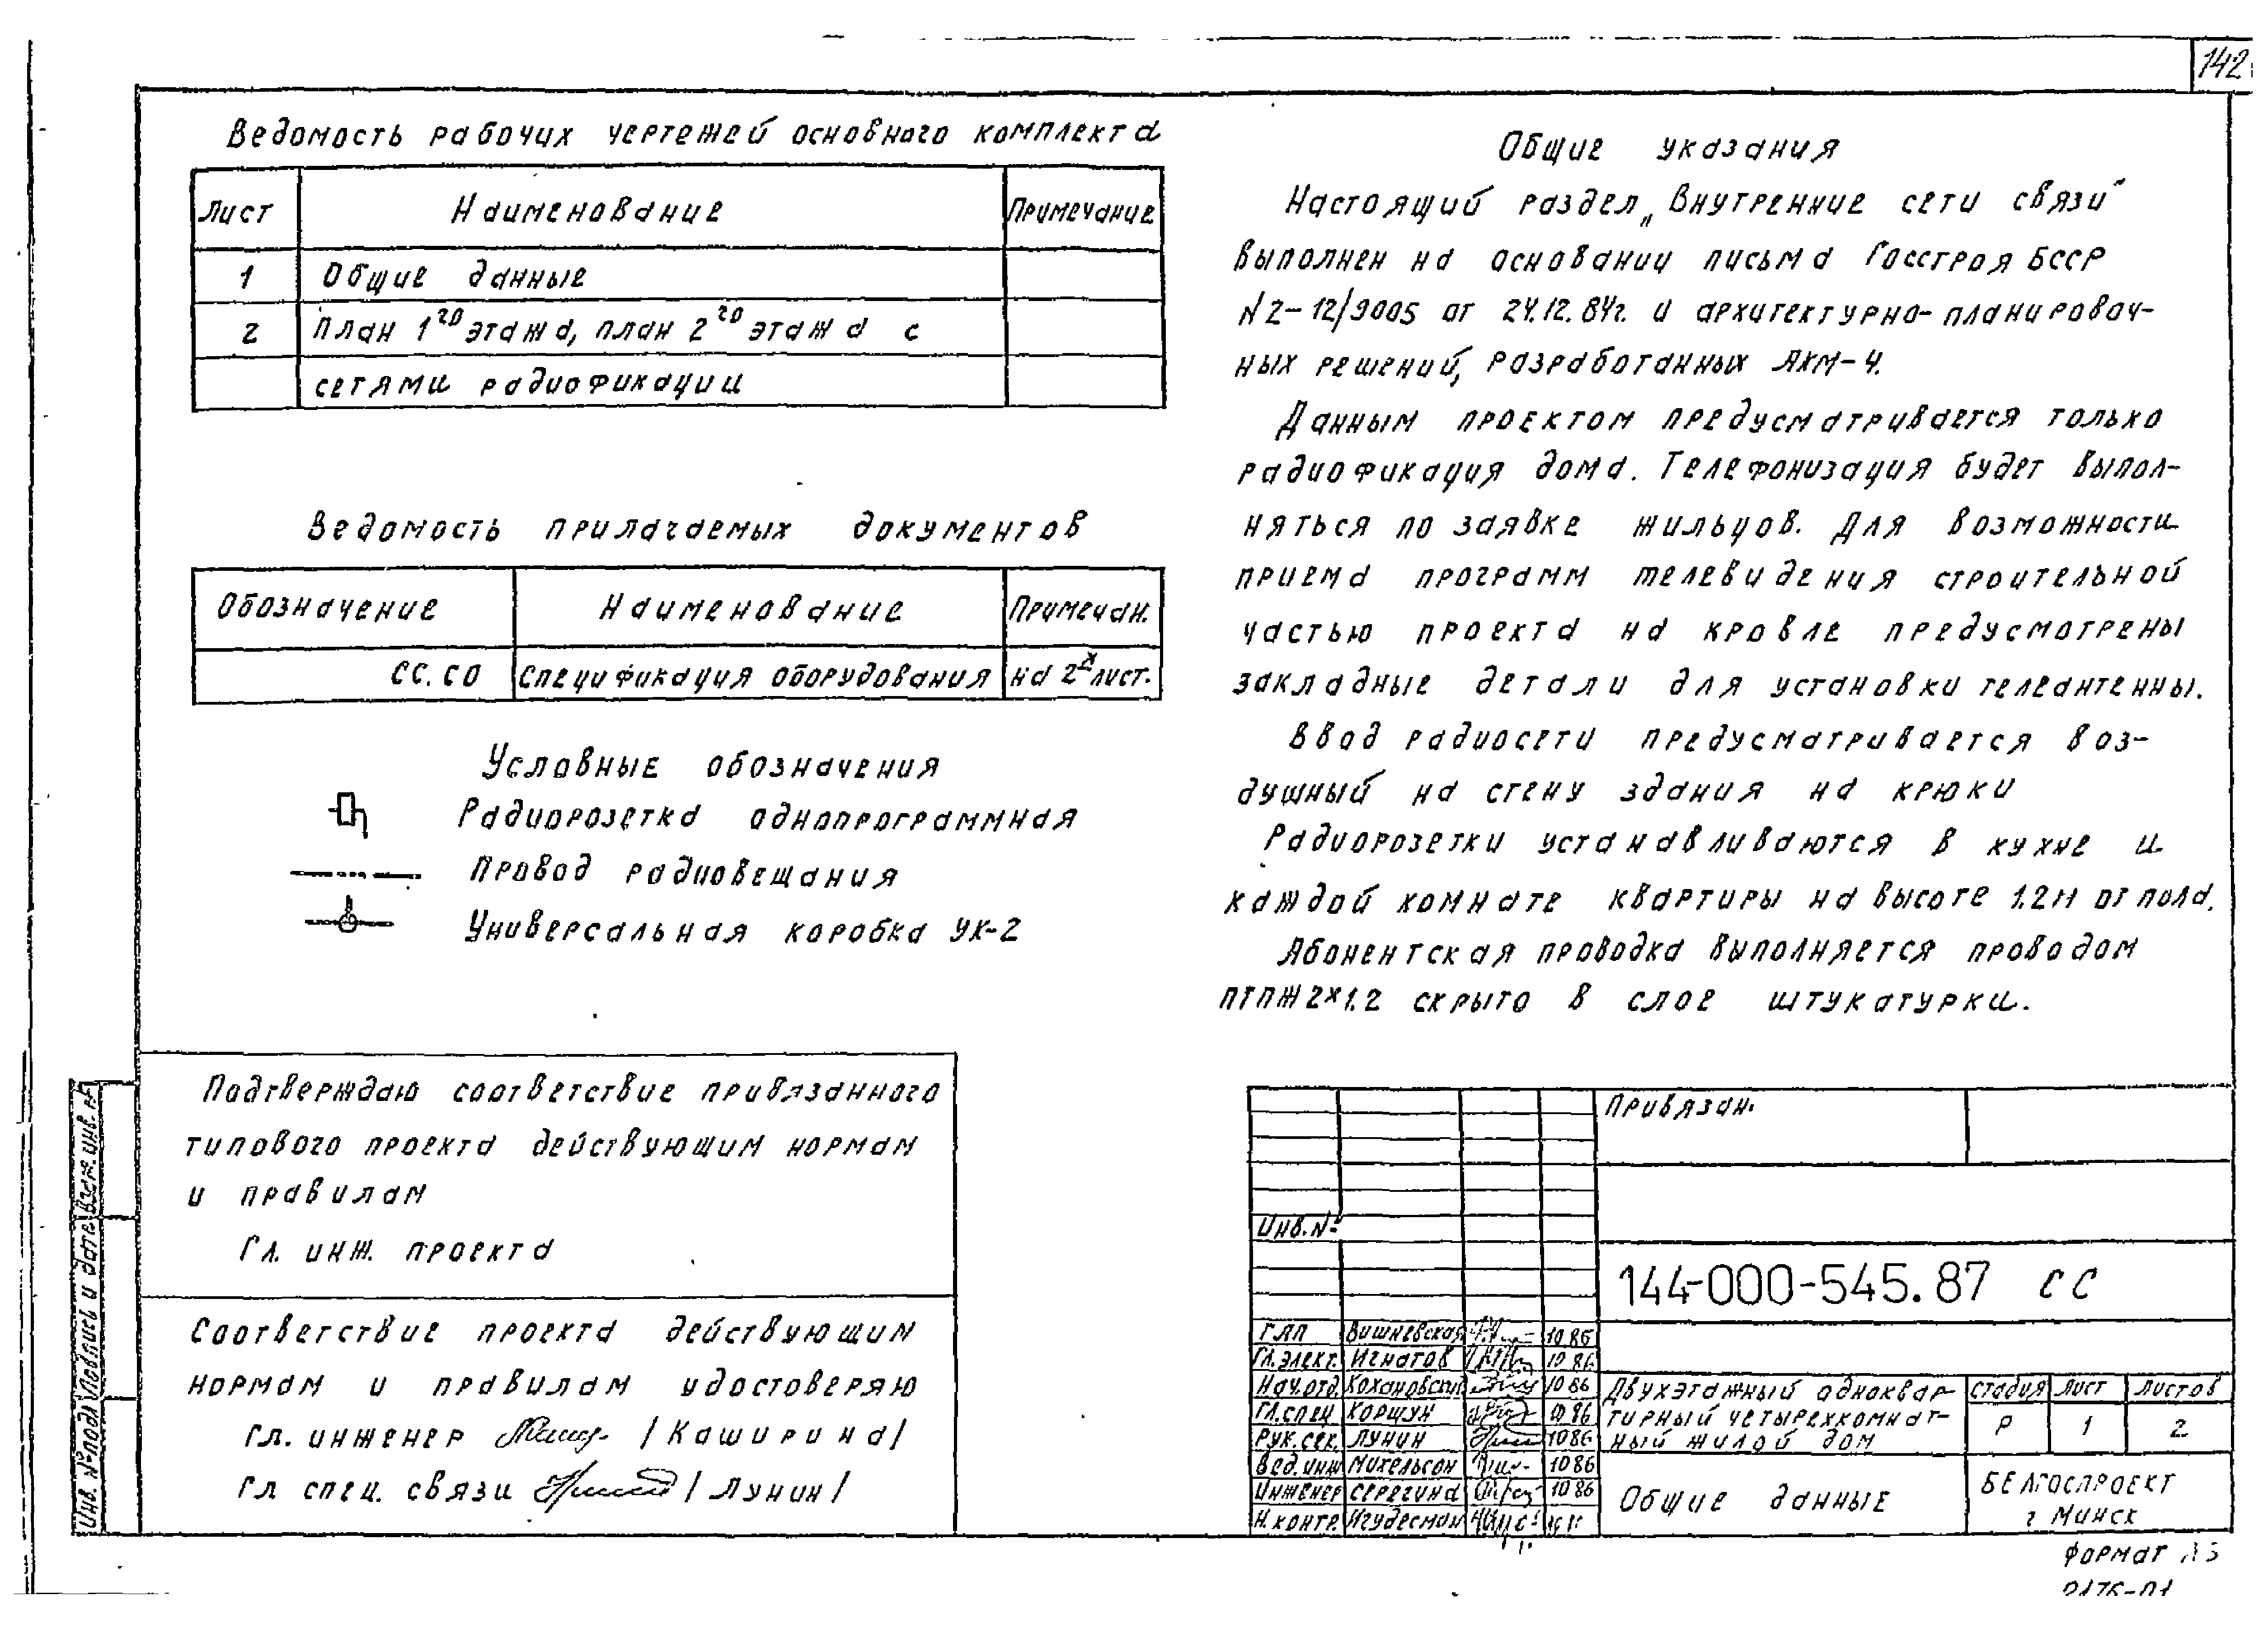 142
Ведомость рабочих чертежей основного комплекта
Лист Наименование Примечание
1 Общие данные
2 План 1го этажа, план 2го этажа с
сетями радиофикации
Ведомость прилагаемых документов
Обозначение Наименование Примечан.
СС.СО Спецификация оборудования на 2х лист.
Условные обозначения
Радиорозетка однопрограммная
Провод радиовещания
Универсальная коробка УК-2
Общие указания
Настоящий раздел „Внутренние сети связи"
выполнен на основании письма Госстроя БССР
N2-12/9005 от 24.12.84г. и архитектурно-планировоч-
ных решений, разработанных АКМ-4.
Данным проектом предусматривается только
радиофикация дома. Телефонизация будет выпол-
няться по заявке жильцов. Для возможности
приема программ телевидения строительной
частью проекта на кровле предусмотрены
закладные детали для установки телеантенны.
Ввод радиосети предусматривается воз-
душный на стену здания на крюки
Радиорозетки устанавливаются в кухне и
каждой комнате квартиры на высоте 1.2м от пола.
Абонентская проводка выполняется проводом
ПТПЖ2×1.2 скрыто в слое штукатурки.
Подтверждаю соответствие привязанного
типового проекта действующим нормам
и правилам
Гл. инж. проекта
Соответствие проекта действующим
нормам и правилам удостоверяю
Гл. инженер /Каширина/
Гл спец. связи /Лунин/
Инв. №подл Подпись и дата Взам. инв. №
Привязан:
Инв. №
144-000-545.87 СС
ГАП Вишневская 10.86
Гл. элект. Игнатов 10 86
Нач.отд. Кохановский 10 86
Гл.спец Коршун 10 86
Рук. сек. Лунин 10 86
Вед. инж Михельсон 10 86
Инженер Серегина 10 86
Н. контр. Игудесман
Двухэтажный одноквар-
тирный четырехкомнат-
ный жилой дом
Стадия Лист Листов
Р 1 2
Общие данные
БЕЛГОСПРОЕКТ
г Минск
Формат А3